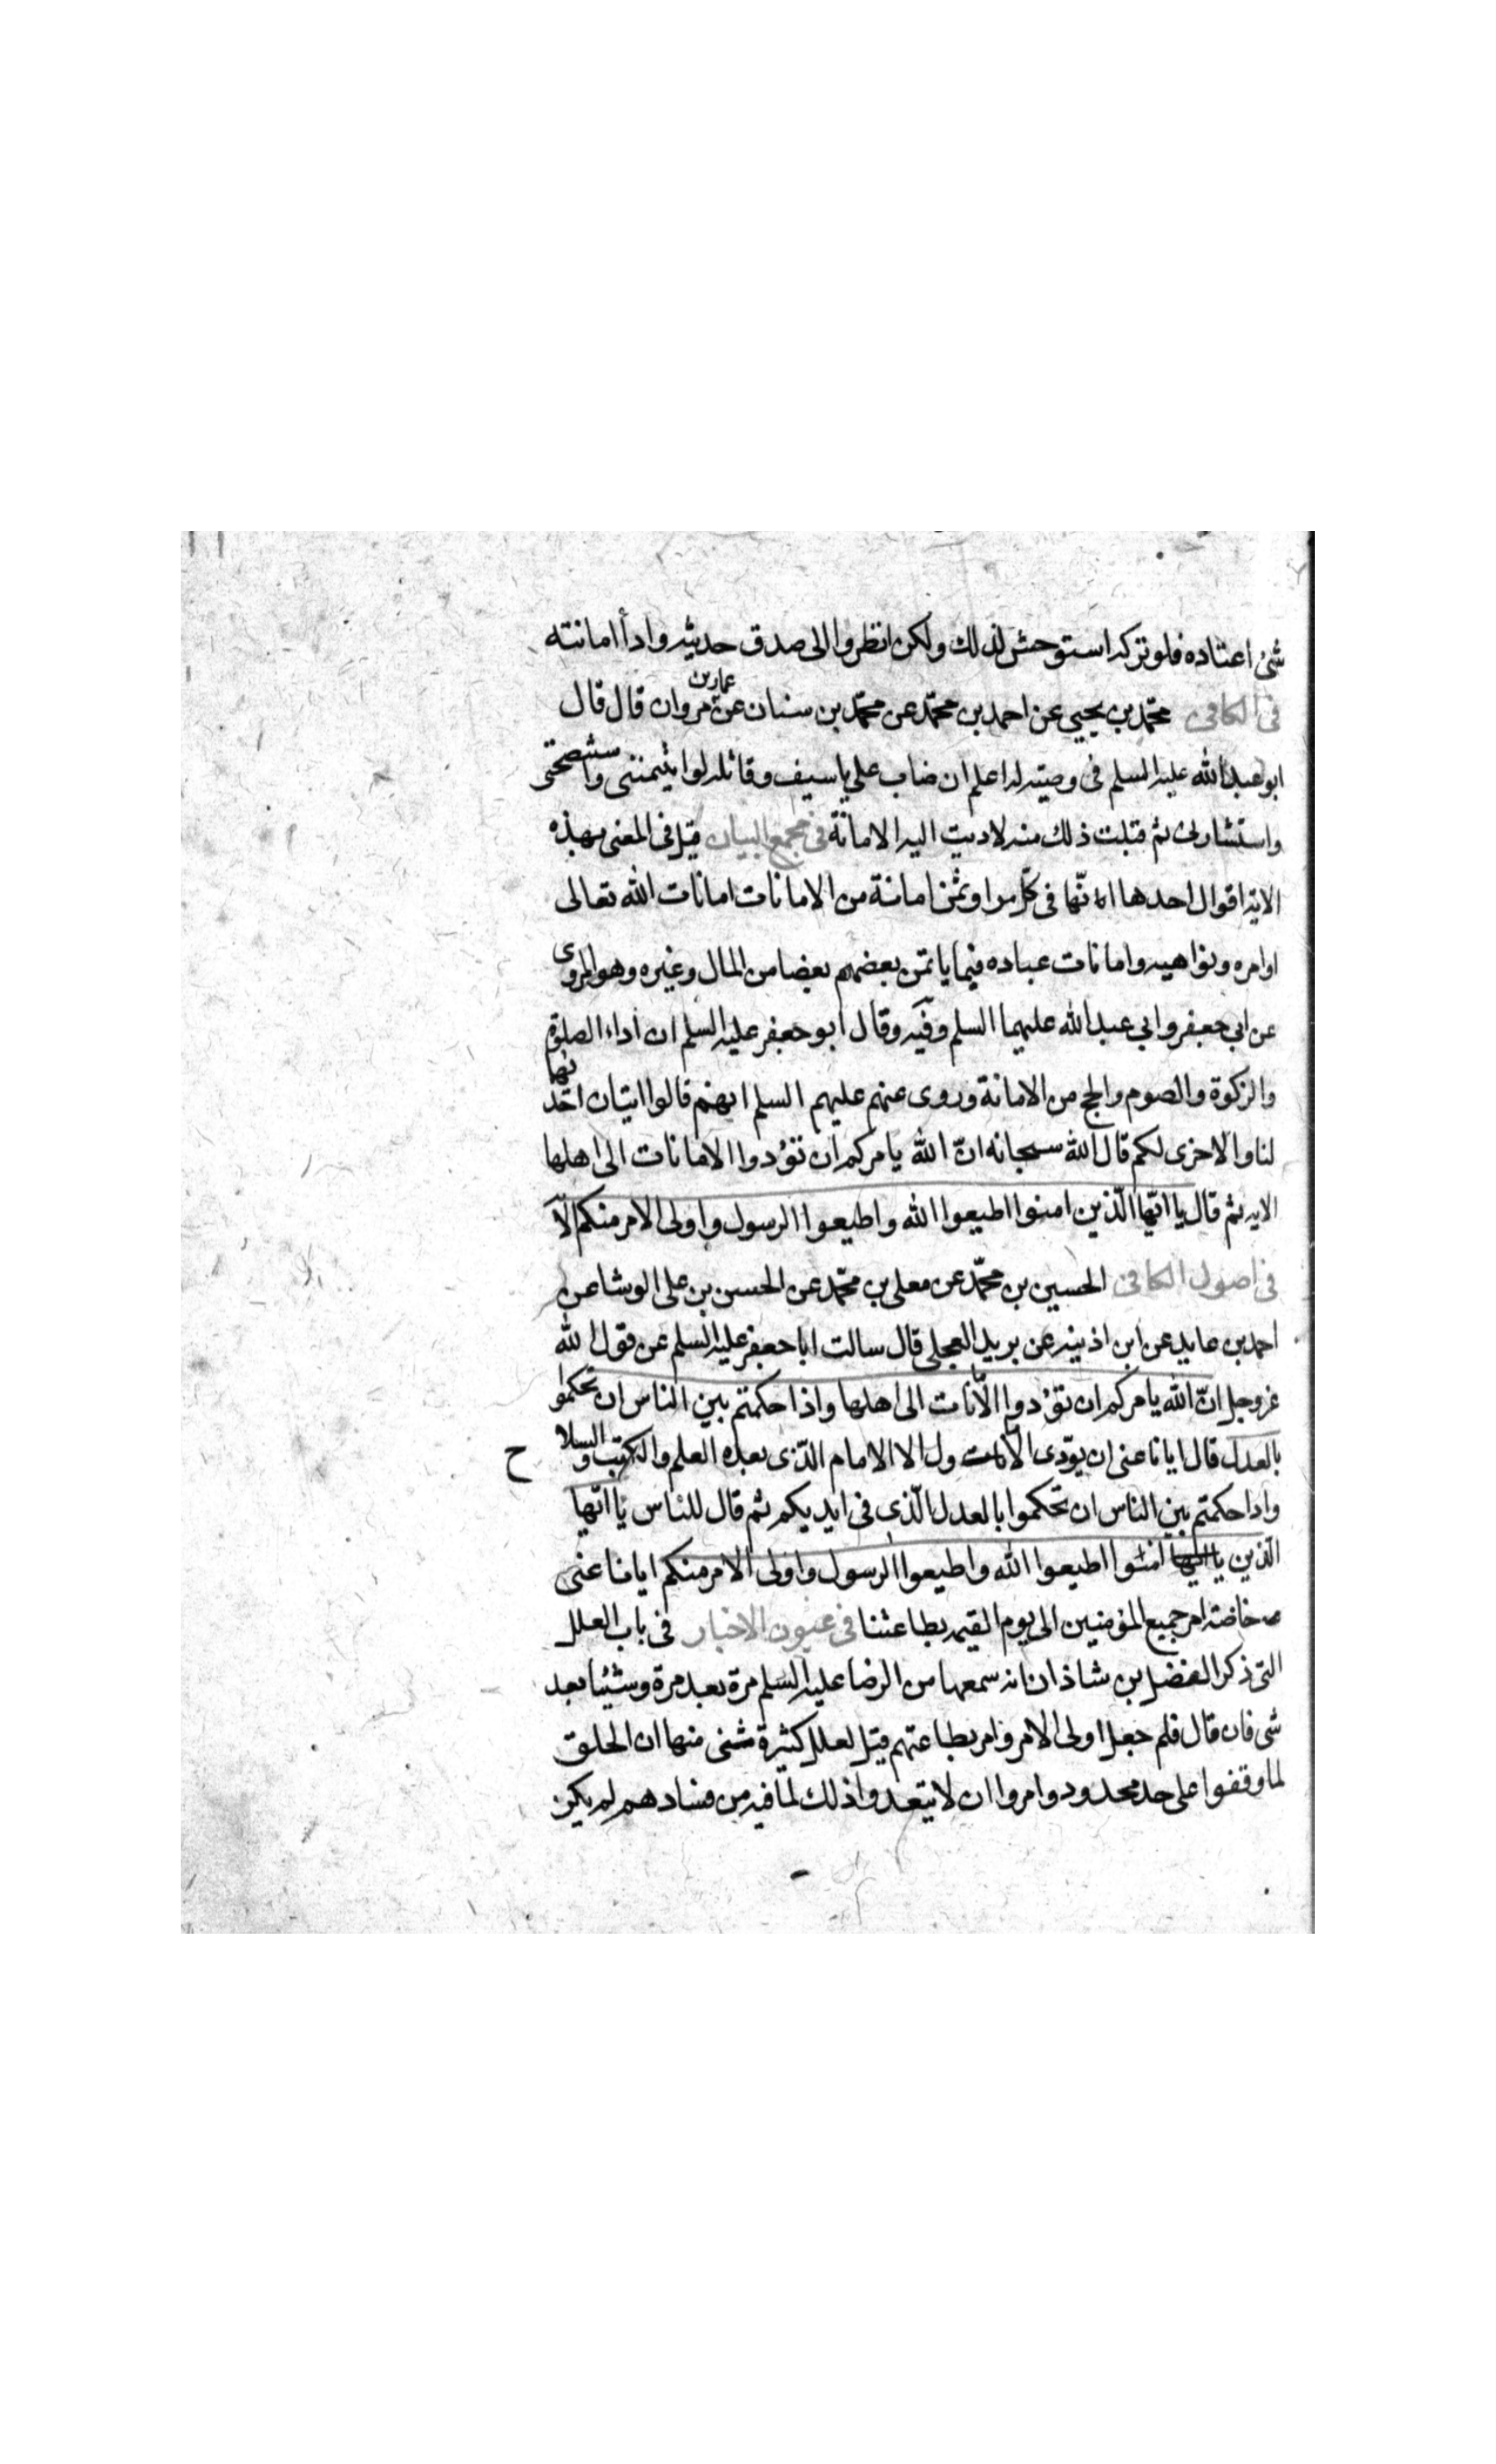 شئ اعتاده فلو تركه استوحش لذلك ولكن انظروا الى صدق حديثه وادأ امانته
فى الكافى محمّد بن يحيى عن احمد بن محمّد عن محمّد بن سنان عن عمار بن مروان قال قال
ابو عبد الله عليه السلم فى وصيته له اعلم ان ضاب علي باسيف وقاتله لوا يتمننى واستنصحنى
واستشارنى ثم قبلت ذلك منه لاديت اليه الامانة فى مجمع البيان قيل فى المعنى بهذه
الاية اقوال احدها انّها فى كلّ من اوتمن امانة من الامانات امانات الله تعالى
اوامره ونواهيه وامانات عباده فيما ياتمن بعضهم بعضا من المال وغيره وهو المروى
عن ابي جعفر وابي عبد الله عليهما السلم وفيه وقال ابو جعفر عليه السلم ان اداء الصلوة
والزكوة والصوم والحج من الامانة وروى عنهم عليهم السلم انهم قالوا ايتان احدنها
لنا والاخرى لكم قال الله سبحانه انّ الله يامركم ان تؤدوا الامانات الى اهلها
الايه ثم قال يا ايّها الّذين امنوا اطيعوا الله واطيعوا الرسول واولى الامر منكم الآ
فى اصول الكافى الحسين بن محمّد عن معلى بن محمّد عن الحسن بن على الوشا عن
احمد بن عايد عن ابن اذينه عن بريد العجلى قال سالت ابا جعفر عليه السلم عن قول الله
عز وجل انّ الله يامركم ان تؤدوا الآانات الى اهلها واذا حكمتم بين الناس ان تحكموا
بالعدل قال ايانا عنى ان يودّى الاول الا الامام الّذى بعده العلم والكتب والسلاح
واذا حكمتم بين الناس ان تحكموا بالعدل الّذى فى ايديكم ثم قال للناس يا ايّها
الّذين امنوا اطيعوا الله واطيعوا الرسول واولى الامر منكم ايانا عنى
خاصة امر جميع المؤمنين الى يوم القيمه بطاعتنا فى عيون الاخبار فى باب العلل
التى ذكر الفضل بن شاذان انه سمعها من الرضا عليه السلم مرة بعد مرة وشيئا بعد
شى فان قال فلم جعل اولى الامر وامر بطاعتهم قيل لعلل كثيرة شتى منها ان الخلق
لما وقفوا على حد محدود وامروا ان لا يتعدوا ذلك لما فيه من فسادهم لم يكن